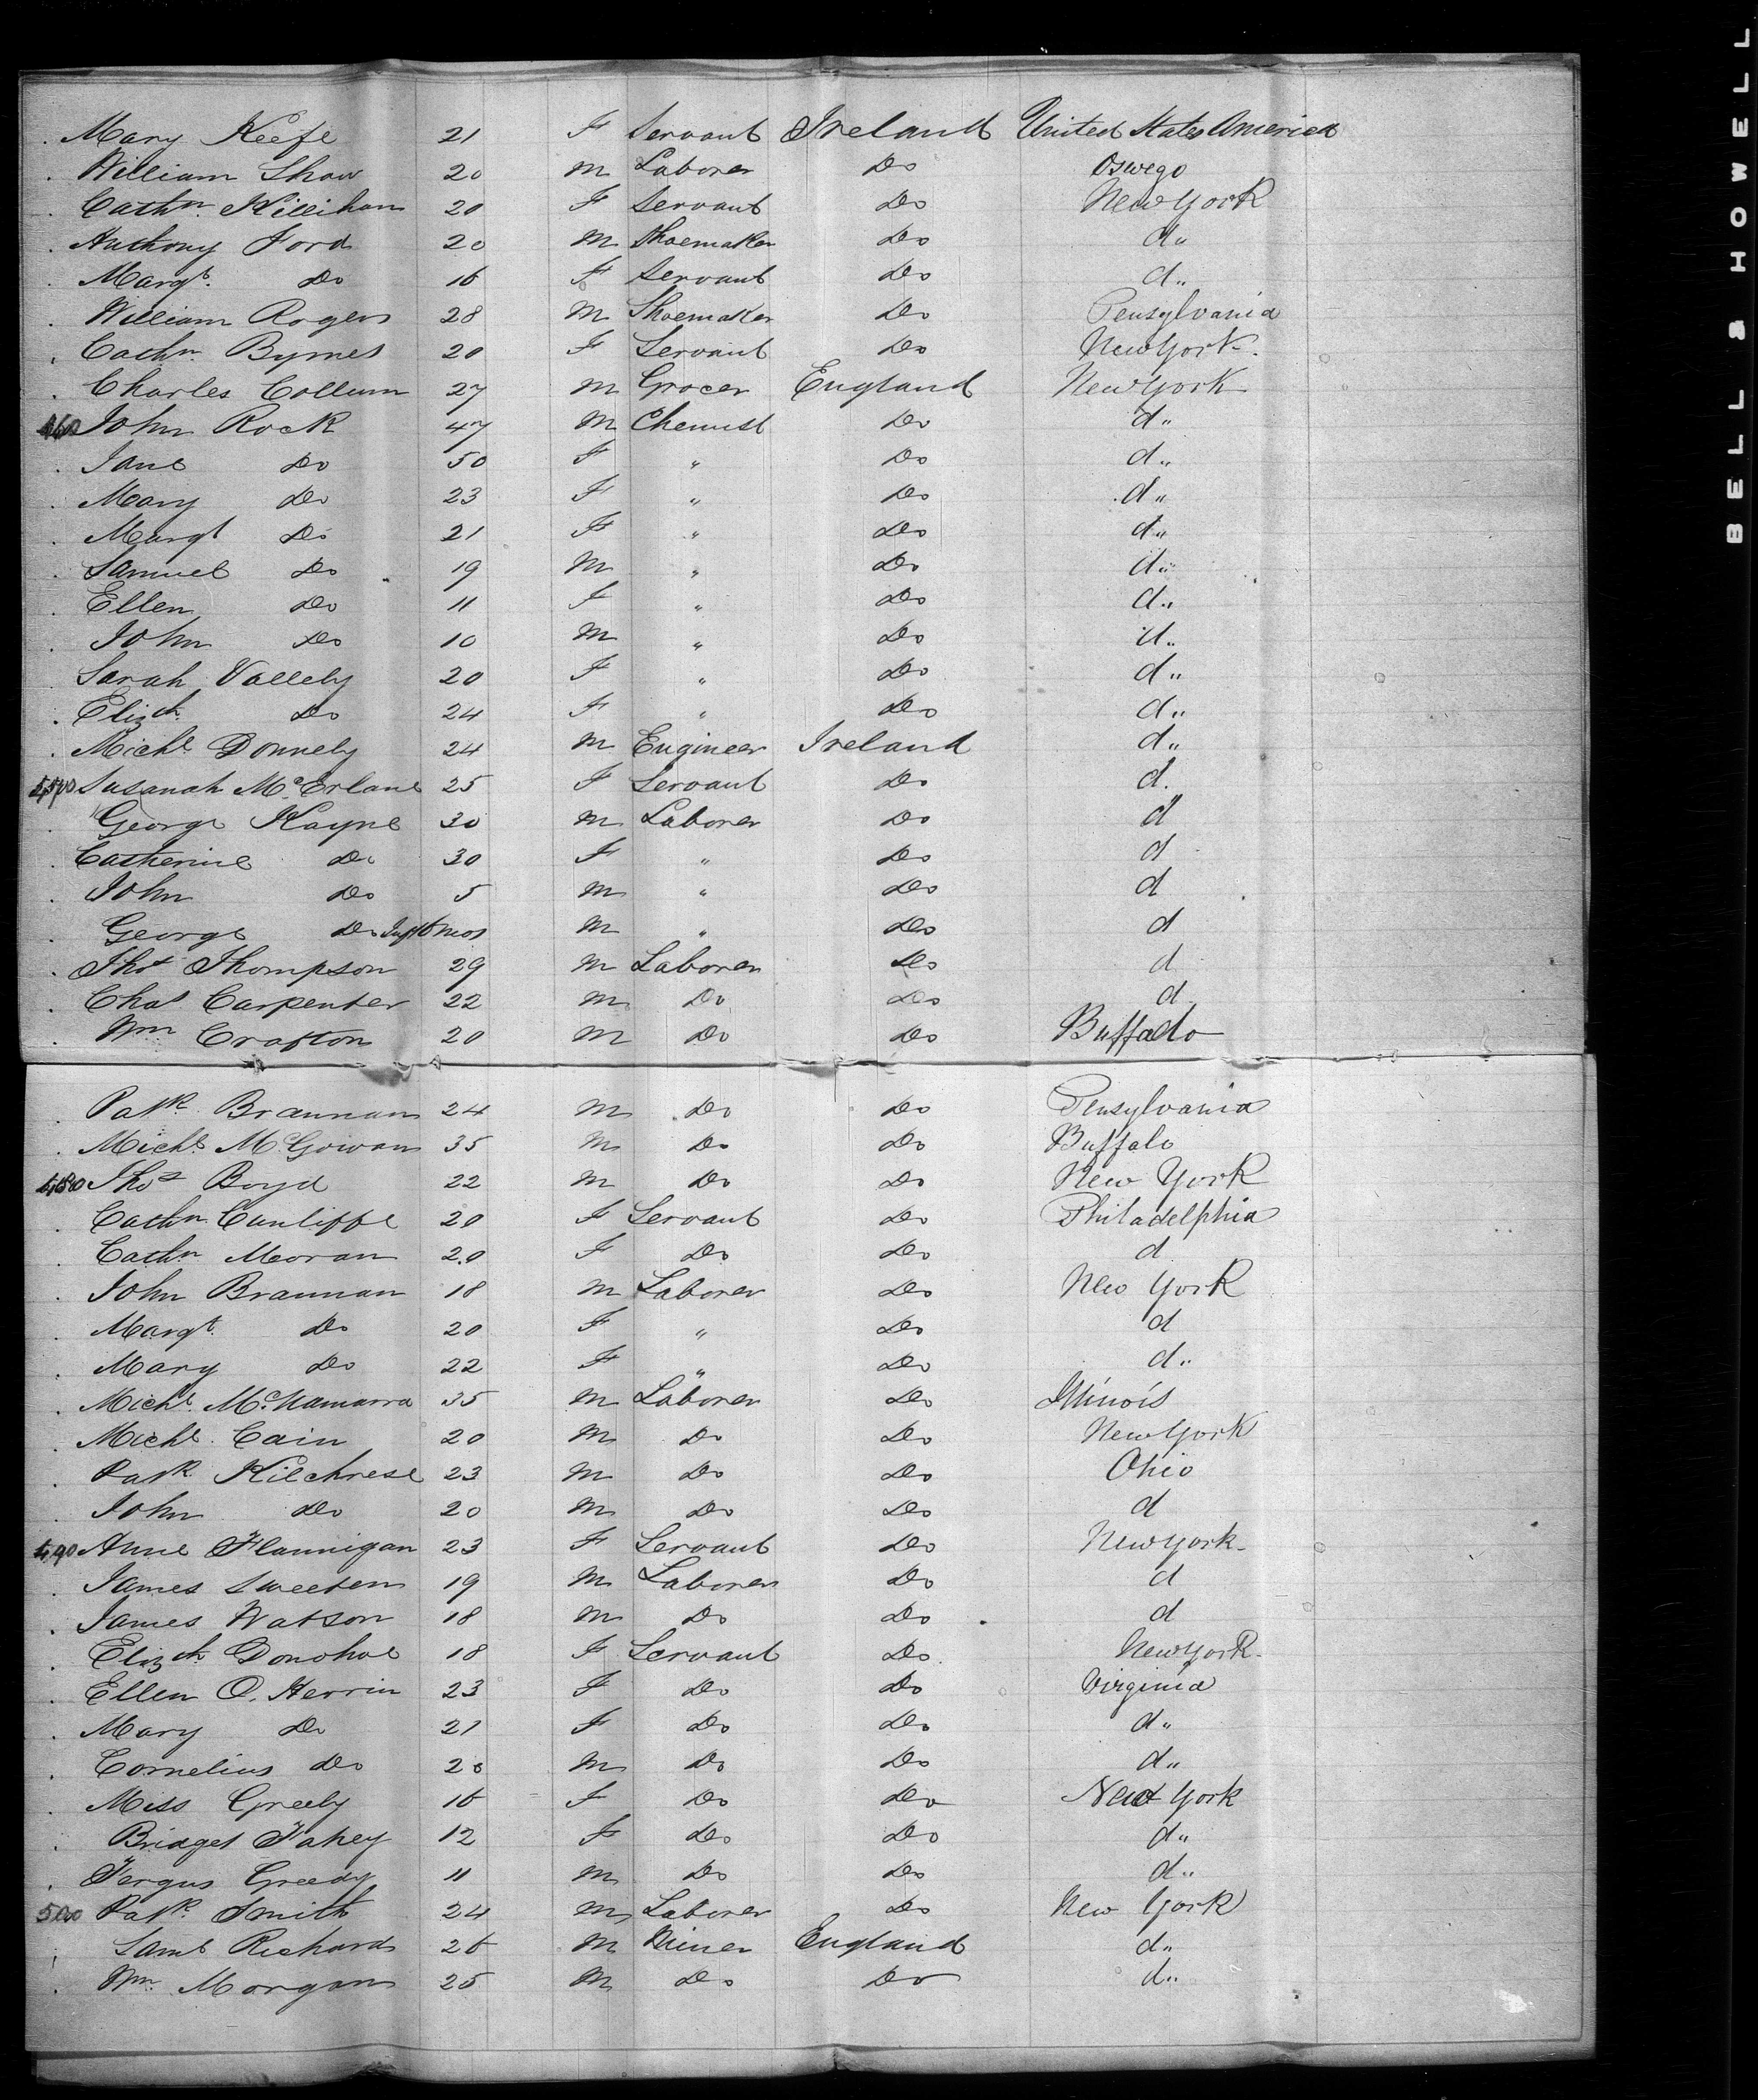 Mary Keefe 21 F Servant Ireland United States America
William Shaw 20 M Laborer Do Oswego
Cathn. Killihan 20 F Servant Do New York
Anthony Ford 20 M Shoemaker Do d"
Margt. Do 16 F Servant Do d"
William Rogers 28 M Shoemaker Do Pensylvania
Cathn. Byrnes 20 F Servant Do New York.
Charles Collum 27 M Grocer England New York
460 John Rock 47 M Chemist Do d"
Jane Do 50 F " Do d"
Mary Do 23 F " Do d"
Margt Do 21 F " Do d"
Samuel Do 19 M " Do d"
Ellen Do 11 F " Do d"
John Do 10 M " Do d"
Sarah Vallely 20 F " Do d"
Elizth. Do 24 F " Do d"
Michl. Donnely 24 M Engineer Ireland d"
470 Susanah McErlane 25 F Servant Do d.
George Kayne 30 M Laborer Do d
Catherine Do 30 F " Do d
John Do 5 M " Do d
George Do Inft 6 mos M " Do d
Thos Thompson 29 M Laborer Do d
Chas Carpenter 22 M Do Do d
Wm Crafton 20 M Do Do Buffalo
Patk. Brannan 24 M Do Do Pensylvania
Michl. McGowan 35 M Do Do Buffalo
480 Thos Boyd 22 M Do Do New York
Cathn. Cunliffe 20 F Servant Do Philadelphia
Cathn Moran 20 F Do Do d
John Brannan 18 M Laborer Do New York
Margt. Do 20 F " Do d
Mary Do 22 F " Do d"
Michl. McNamarra 35 M Laborer Do Illinois
Michl. Cain 20 M Do Do New York
Patk. Kilchrese 23 M Do Do Ohio
John Do 20 M Do Do d
490 Anne Flannigan 23 F Servant Do New York
James Sweeten 19 M Laborer Do d
James Watson 18 M Do Do d
Elizth Donohoe 18 F Servant Do New York
Ellen O. Herrin 23 F Do Do Virginia
Mary Do 21 F Do Do d"
Cornelius Do 20 M Do Do d"
Miss Greely 16 F Do Do New York
Bridget Fahey 12 F Do Do d"
Fergus Greedy 11 M Do Do d"
500 Patk. Smith 24 M Laborer Do New York
Saml Richards 26 M Miner England d"
Wm. Morgan 25 M Do Do d"
BELL & HOWELL